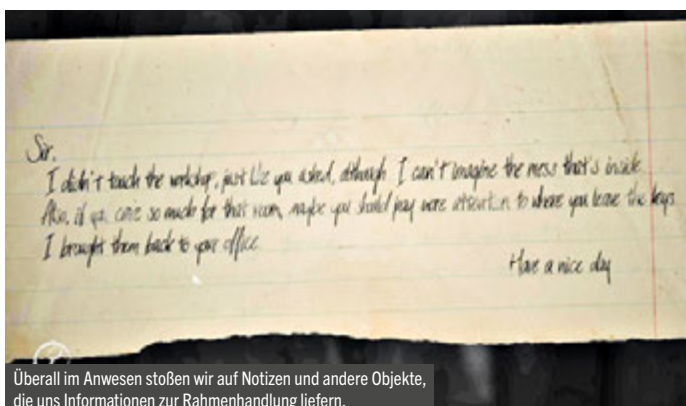 Sir,
I didn't touch the workshop, just like you asked, although I can't imagine the mess that's inside.
Also, if you care so much for that room, maybe you should pay more attention to where you leave the keys.
I brought them back to your office.
Have a nice day
Überall im Anwesen stoßen wir auf Notizen und andere Objekte,
die uns Informationen zur Rahmenhandlung liefern.